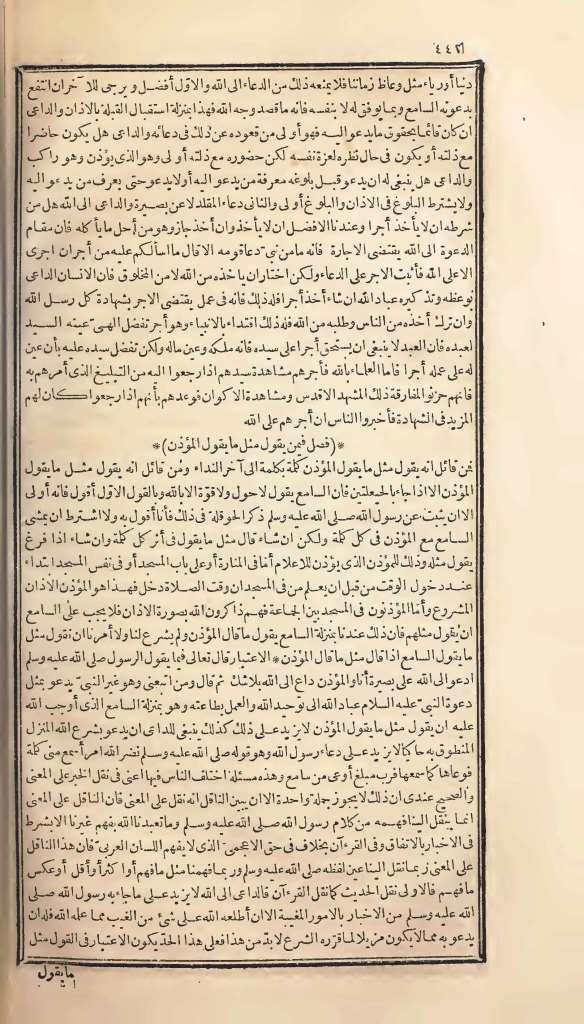 ٤٤٢
دنيا أو رياء مثل وعاظ زماننا فلا يمنعه ذلك من الدعاء الى الله والاول أفضل ويرجى للآخر ان انتفع
بدعوته السامع وبما يوفق له لا بنفسه فانه ما قصد وجه الله فهذا بمنزلة استقبال القبلة بالاذان والداعى
ان كان قائما بحقوق ما يدعو اليه فهو أولى من قعوده عن ذلك فى دعائه والداعى هل يكون حاضرا
مع ذلته أو يكون فى حال نظره لعزة نفسه لكن حضوره مع ذلته أولى وهو الذى يؤذن وهو راكب
والداعى هل ينبغى له ان يدعو قبل بلوغه معرفة من يدعو اليه أو لا يدعو حتى يعرف من يدعو اليه
ولا يشترط البلوغ فى الاذان والبلوغ أولى والثانى دعاء المقلد لا عن بصيرة والداعى الى الله هل من
شرطه ان لا يأخذ أجرا وعندنا الافضل ان لا يأخذ وان أخذ جاز وهو من أحل ما يأكله فان مقام
الدعوة الى الله يقتضى الاجارة فانه ما من نبى دعا قومه الا قال ما اسألكم عليه من أجر ان اجرى
الا على الله فأثبت الاجر على الدعاء ولكن اختار ان ياخذه من الله لا من المخلوق فان الانسان الداعى
بوعظه وتذكيره عباد الله ان شاء أخذ أجرا فله ذلك فانه فى عمل يقتضى الاجر بشهادة كل رسل الله
وان ترك أخذه من الناس وطلبه من الله فله ذلك اقتداء بالانبياء وهو أجر تفضل الهى عينه السيد
لعبده فان العبد لا ينبغى ان يستحق أجرا على سيده فانه ملكه وعين ماله ولكن تفضل سيده عليه بأن عين
له على عمله أجرا فاما العلماء بالله فأجرهم مشاهدة سيدهم اذا رجعوا اليه من التبليغ الذى أمرهم به
فانهم حزنوا لمفارقة ذلك المشهد الاقدس ومشاهدة الاكوان فوعدهم بأنهم اذا رجعوا كان لهم
المزيد فى الشهادة فأخبروا الناس ان أجرهم على الله
*(فصل فيمن يقول مثل ما يقول المؤذن)*
فمن قائل انه يقول مثل ما يقول المؤذن كلمة بكلمة الى آخر النداء ومن قائل انه يقول مثل ما يقول
المؤذن الا اذا جاء بالحيعلتين فان السامع يقول لا حول ولا قوة الا بالله وبالقول الاول أقول فانه أولى
الا ان يثبت عن رسول الله صلى الله عليه وسلم ذكر الحوقلة فى ذلك فأنا أقول به ولا اشترط ان يمشى
السامع مع المؤذن فى كل كلمة ولكن ان شاء قال مثل ما يقول فى أثر كل كلمة وان شاء اذا فرغ
يقول مثله وذلك للمؤذن الذى يؤذن للاعلام أما فى المنارة أو على باب المسجد أو فى نفس المسجد ابتداء
عند دخول الوقت من قبل ان يعلم من فى المسجد ان وقت الصلاة دخل فهذا هو المؤذن الاذان
المشروع وأما المؤذنون فى المسجد بين الجماعة فهم ذاكرون الله بصورة الاذان فلا يجب على السامع
ان يقول مثلهم فان ذلك عندنا بمنزلة السامع يقول ما قال المؤذن ولم يشرع لنا ولا أمرنا ان نقول مثل
ما يقول السامع اذا قال مثل ما قال المؤذن * الاعتبار قال تعالى فيما يقول الرسول صلى الله عليه وسلم
ادعوا الى الله على بصيرة أنا والمؤذن داع الى الله بلا شك ثم قال ومن اتبعنى وهو غير النبى يدعو بمثل
دعوة النبى عليه السلام عباد الله الى توحيد الله والعمل بطاعته وهو بمنزلة السامع الذى أوجب الله
عليه ان يقول مثل ما يقول المؤذن لا يزيد على ذلك كذلك ينبغى للداعى ان يدعو بشرع الله المنزل
المنطوق به حاكيا لا يزيد على دعاء رسول الله وهو قوله صلى الله عليه وسلم نضر الله امرأ سمع منى كلمة
فوعاها كما سمعها فرب مبلغ أوعى من سامع وهذه مسئلة اختلف الناس فيها اعنى فى نقل الخبر على المعنى
والصحيح عندى ان ذلك لا يجوز جملة واحدة الا ان يبين الناقل انه نقل على المعنى فان الناقل على المعنى
انما ينقل الينا فهمه من كلام رسول الله صلى الله عليه وسلم وما تعبدنا الله بفهم غيرنا الا بشرط
فى الاخبار بالاتفاق وفى القرءآن بخلاف فى حق الاعجمى الذى لا يفهم اللسان العربى فان هذا الناقل
على المعنى ربما نقل الينا عين لفظه صلى الله عليه وسلم وربما فهمنا مثل ما فهم أو اكثر أو أقل أو عكس
ما فهم فالاولى نقل الحديث كما نقل القرءآن فالداعى الى الله لا يزيد على ما جاء به رسول الله صلى
الله عليه وسلم من الاخبار بالامور المغيبة الا ان أطلعه الله على شئ من الغيب مما علمه الله فله ان
يدعو به مما لا يكون مزيلا لما قرره الشرع لا بد من هذا فعلى هذا الحد يكون الاعتبار فى القول مثل
ما يقول